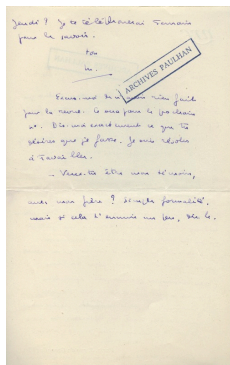 Jeudi ? Je te téléphonerai demain
pour le savoir.
ton
M.
ARCHIVES PAULHAN
Excuse-moi de n'avoir rien fait
pour la revue. Ce sera pour le prochain
n°. Dis-moi exactement ce que tu
désires que je fasse. Je suis résolu
à travailler.
— Veux-tu être mon témoin,
avec mon père ? Simple formalité.
mais si cela t'ennuie un peu, dis-le.